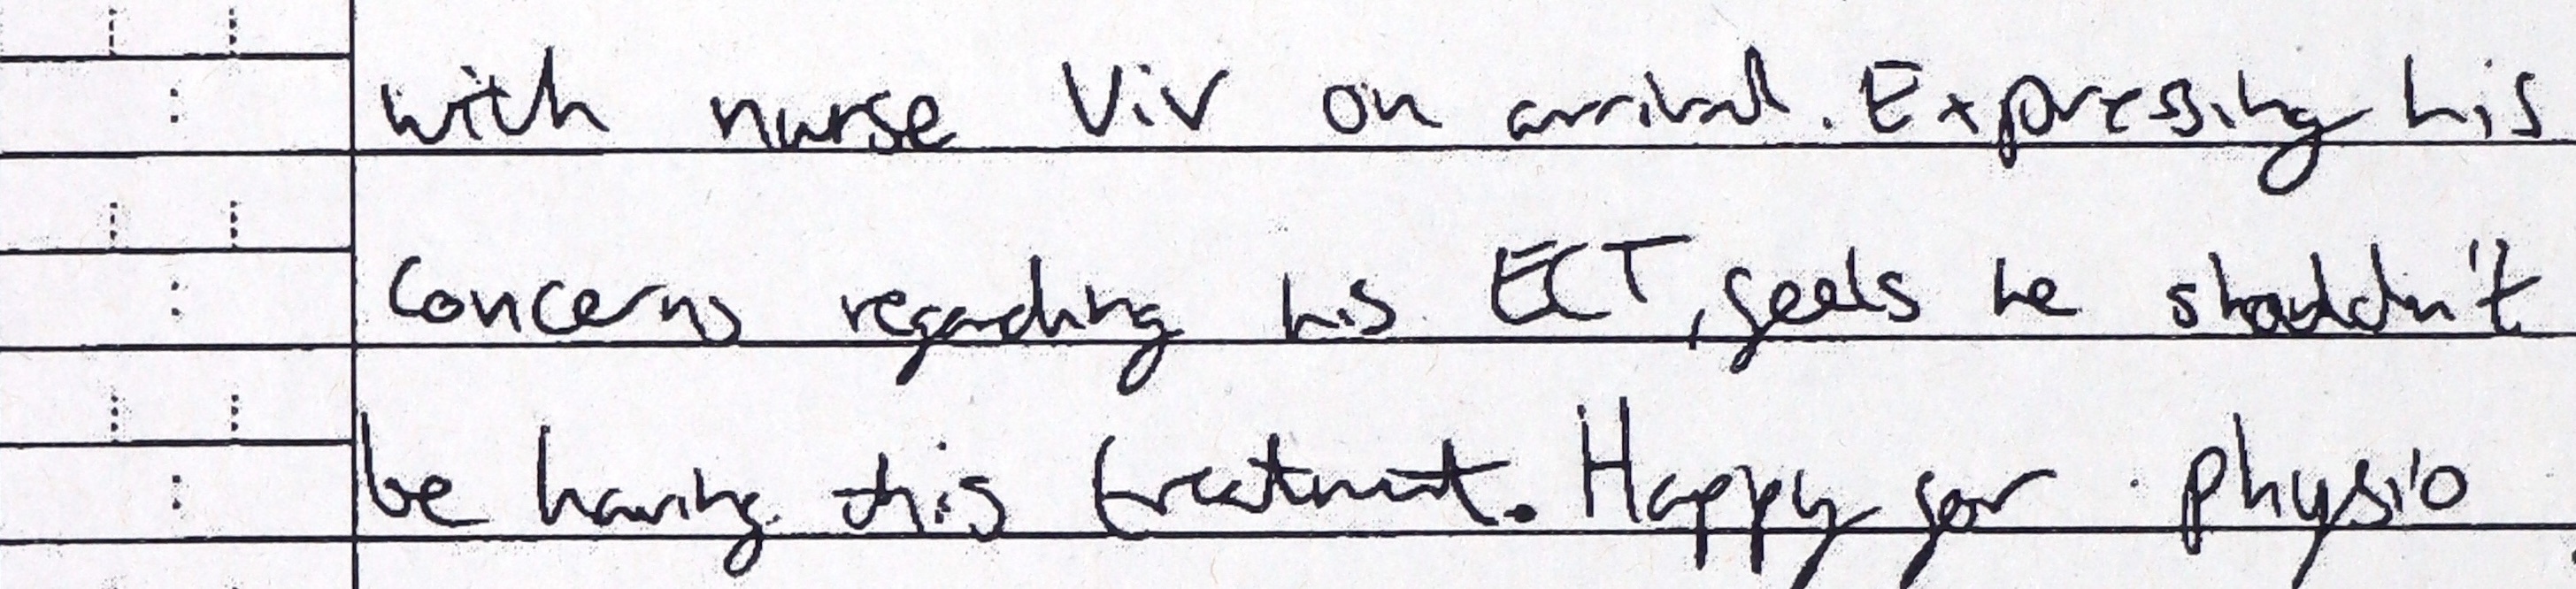 with nurse Viv on arrival. Expressing his
concerns regarding his ECT, feels he shouldn't
be having this treatment. Happy for physio